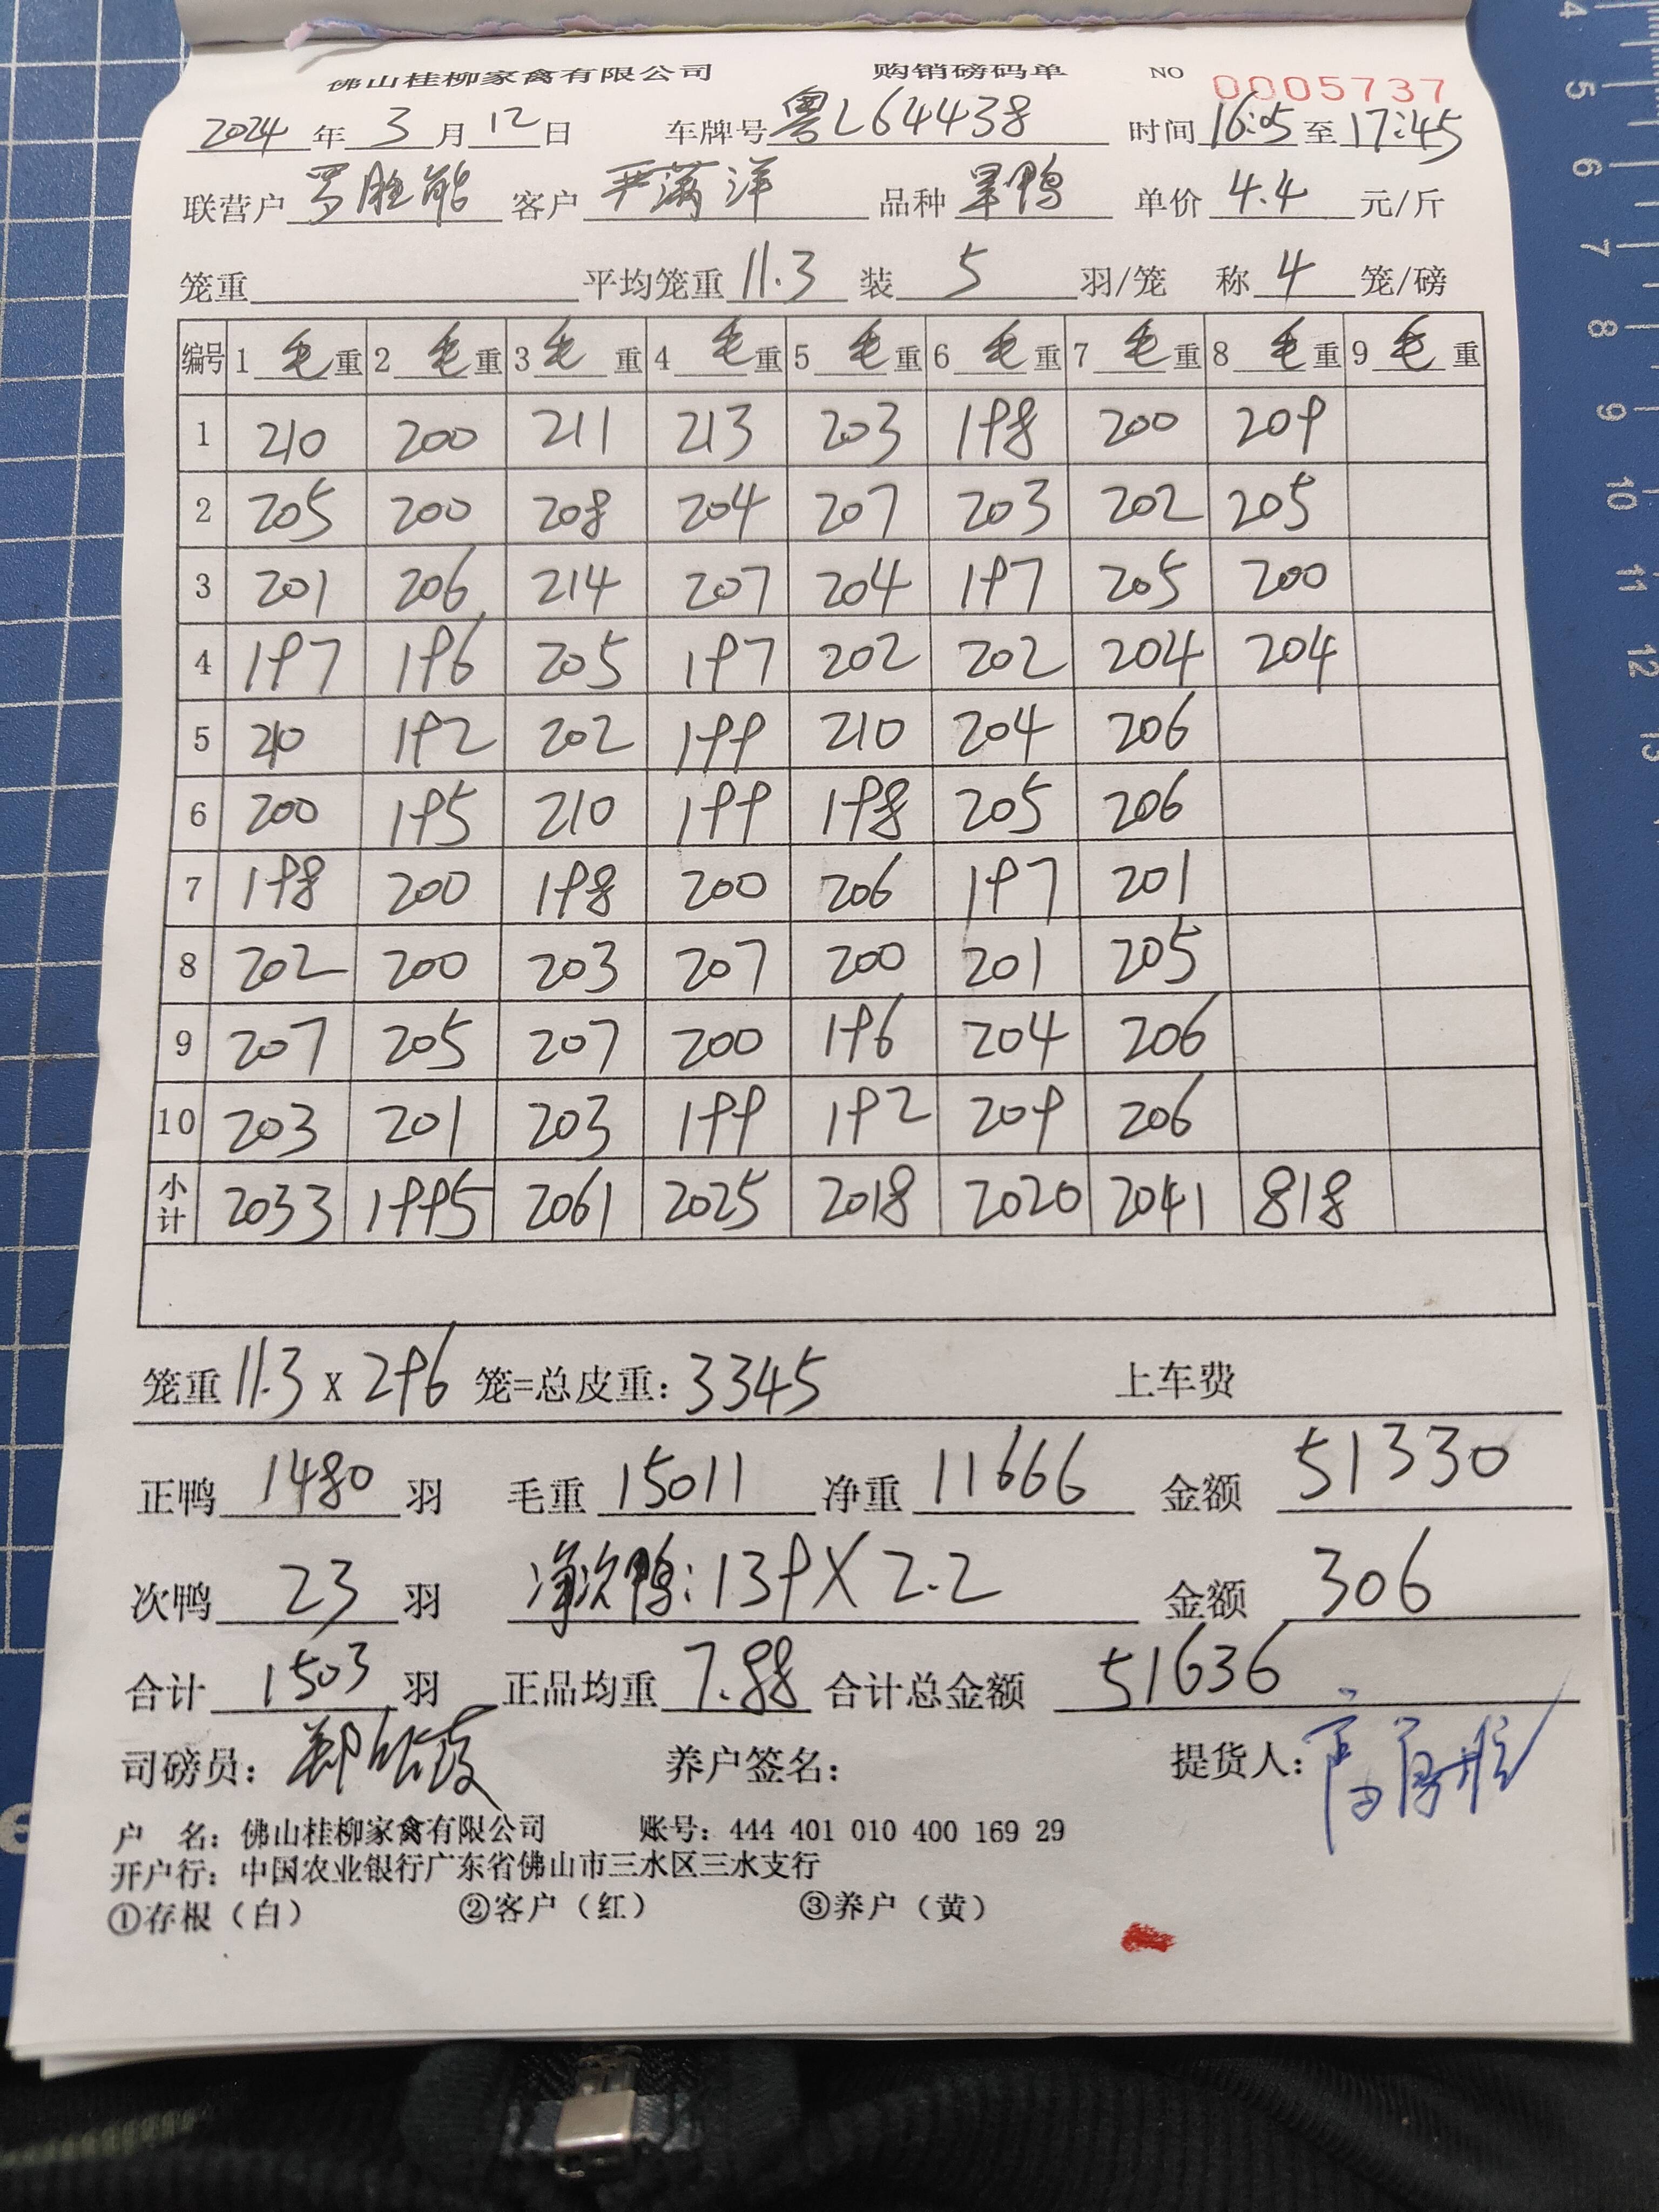 佛山桂柳家禽有限公司 购销磅码单 NO 0005737
2024 年 3 月 12 日 车牌号 粤L64438 时间 16:05 至 17:45
联营户 罗胜能 客户 严满洋 品种 单价 4.4 元/斤
笼重 平均笼重 11.3 装 5 羽/笼 称 4 笼/磅
编号 1 毛重 2 毛重 3 毛重 4 毛重 5 毛重 6 毛重 7 毛重 8 毛重 9 毛重
1 210 200 211 213 203 198 200 209
2 205 200 208 204 207 203 202 205
3 201 206 214 207 204 197 205 200
4 197 196 205 197 202 202 204 204
5 210 192 202 199 210 204 206
6 200 195 210 199 198 205 206
7 198 200 198 200 206 197 201
8 202 200 203 207 200 201 205
9 207 205 207 200 196 204 206
10 203 201 203 199 192 209 206
小计 2033 1995 2061 2025 2018 2020 2041 818
笼重 11.3 x 296 笼=总皮重: 3345 上车费
正鸭 1480 羽 毛重 15011 净重 11666 金额 51330
次鸭 23 羽 净次鸭: 139 X 2.2 金额 306
合计 1503 羽 正品均重 7.88 合计总金额 51636
司磅员: 养户签名: 提货人:
户 名: 佛山桂柳家禽有限公司 账号: 444 401 010 400 169 29
开户行: 中国农业银行广东省佛山市三水区三水支行
①存根（白） ②客户（红） ③养户（黄）
4
5
6
7
8
9
10
11
12
13